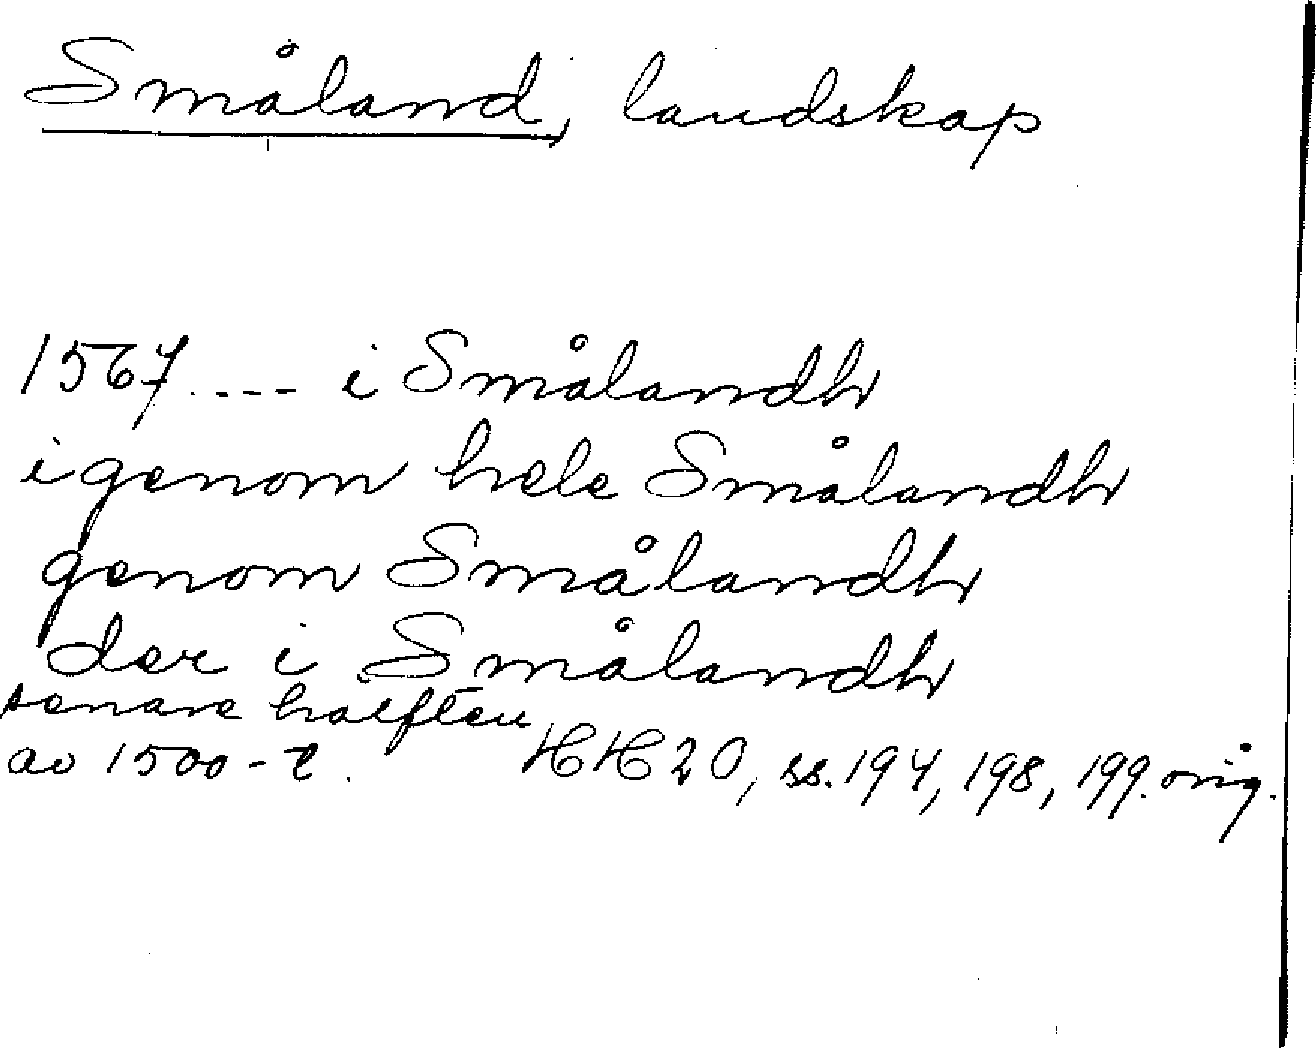 Småland, landskap
1567 .... i Smålandh
igenom hele Smålandh
genom Smålandh
der i Smålandh
senare hälften
av 1500-t. HH 20, ss. 194, 198, 199. orig.